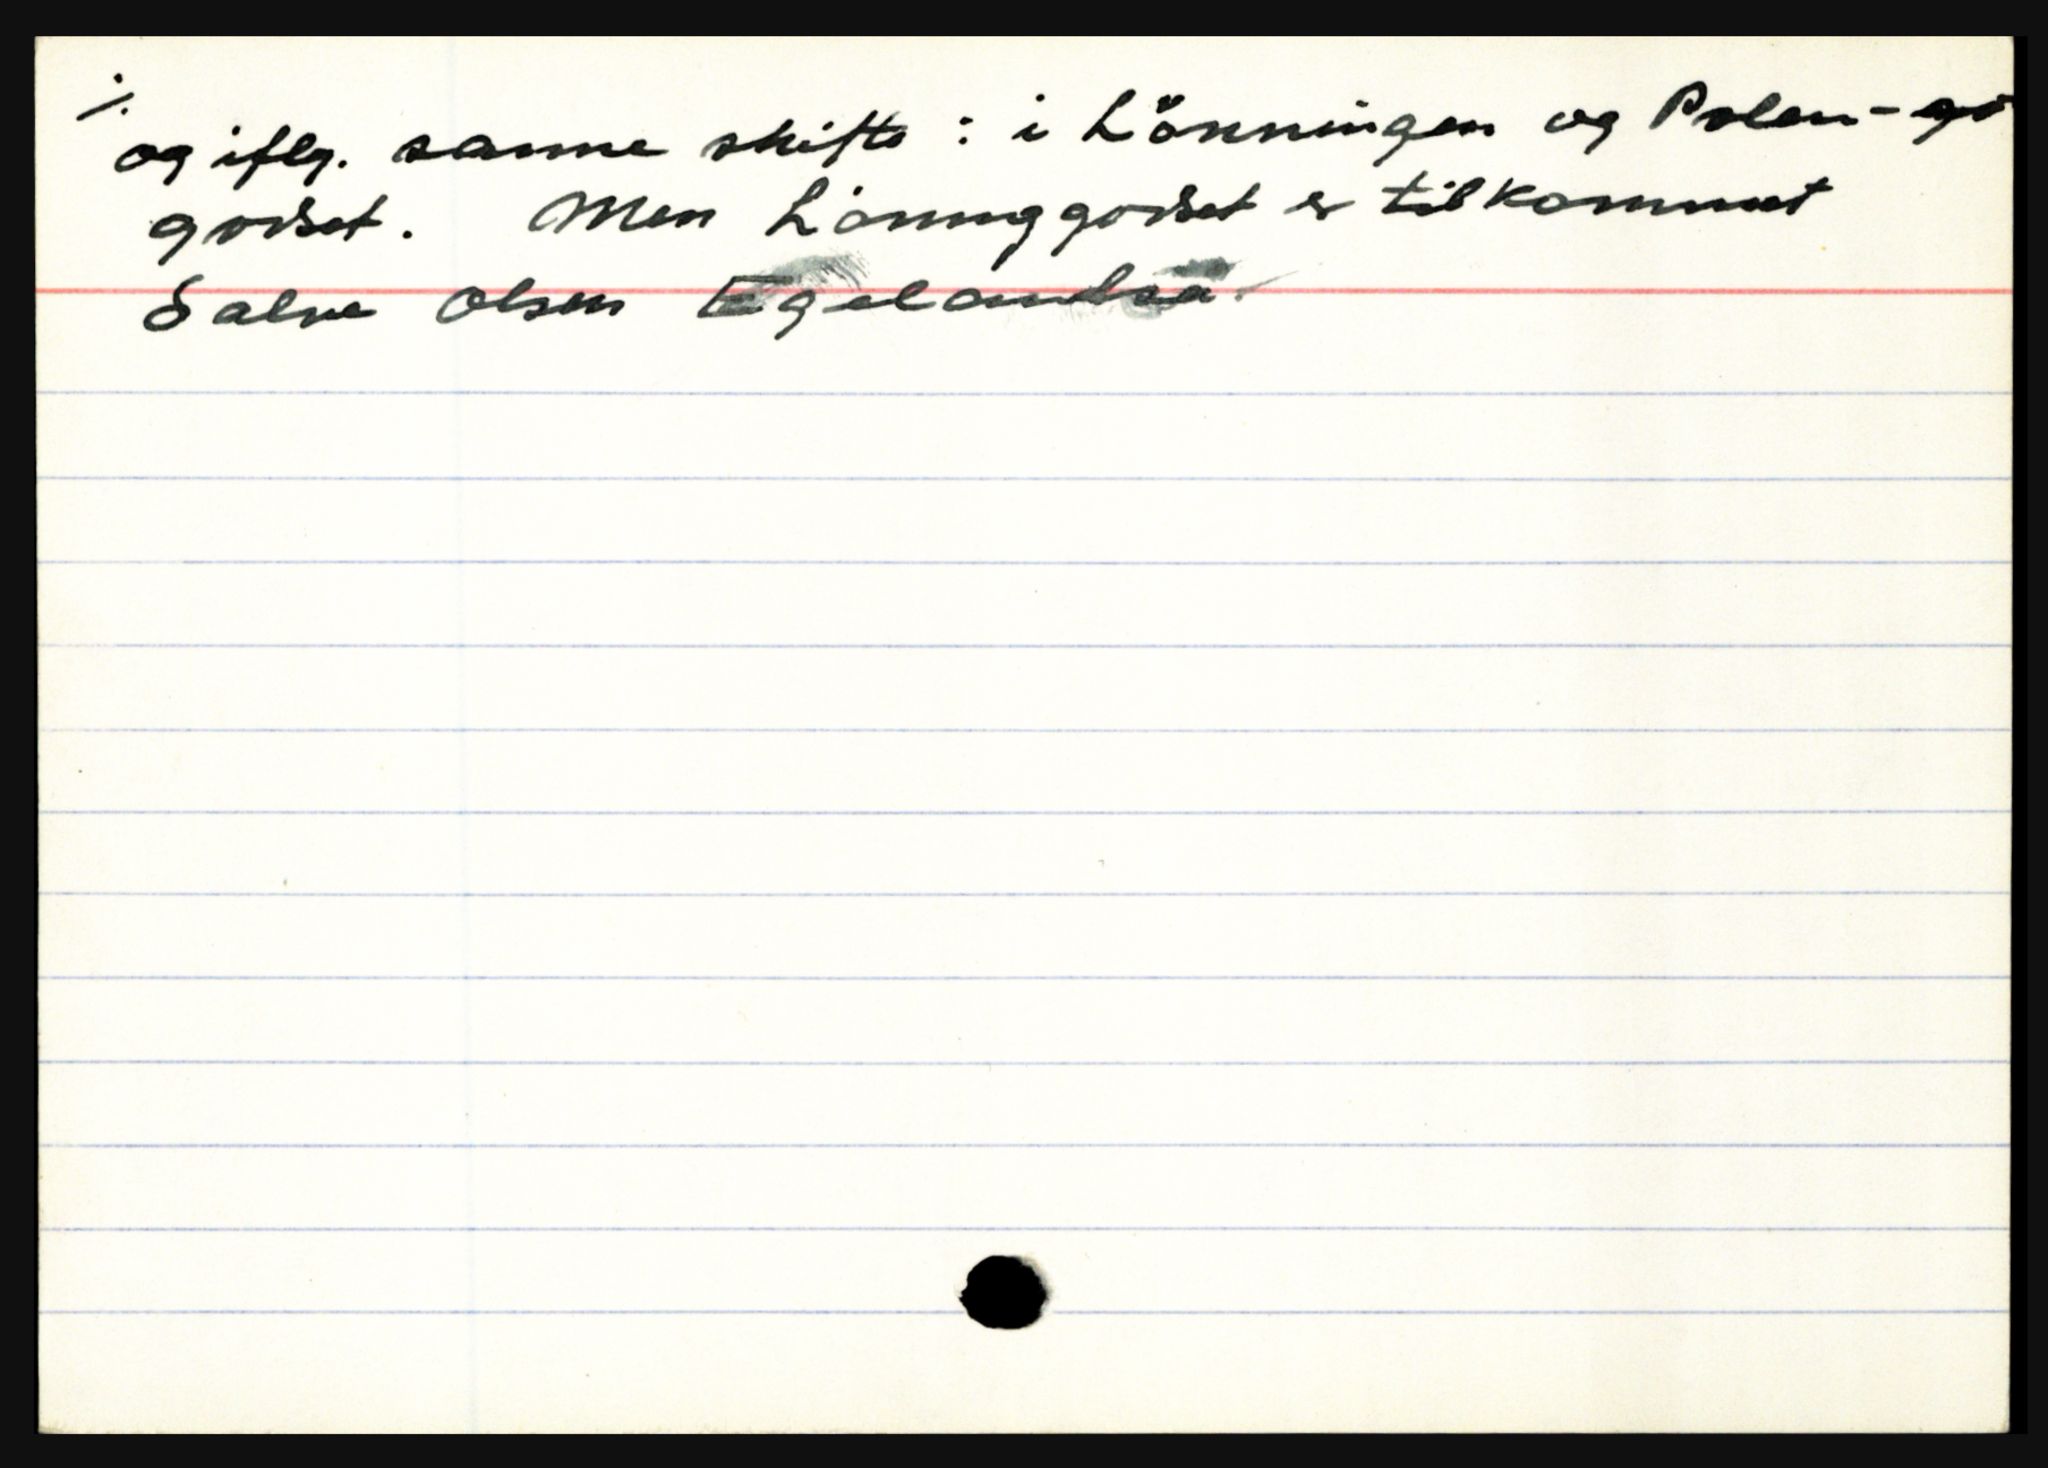 ./.
og iflg. samme skifte : i Lönningen og Polen-
godset. Men Lönninggodset er tilkommet
Salve Olsen Egelandsa.